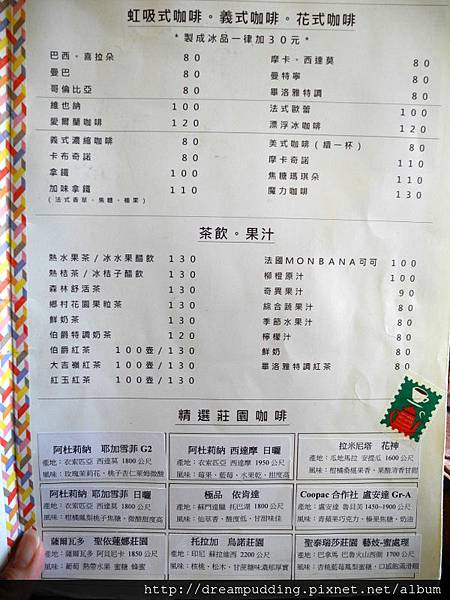 虹吸式咖啡。義式咖啡。花式咖啡
*製成冰品一律加30元*
巴西。喜拉朵 80
曼巴 80
哥倫比亞 80
維也納 100
愛爾蘭咖啡 120
義式濃縮咖啡 80
卡布奇諾 80
拿鐵 100
加味拿鐵 110
(法式香草、焦糖、榛果)
摩卡。西達莫 80
曼特寧 80
畢洛雅特調 80
法式歐蕾 100
漂浮冰咖啡 120
美式咖啡(續一杯) 80
摩卡奇諾 110
焦糖瑪琪朵 110
魔力咖啡 130
茶飲。果汁
熱水果茶/冰水果醋飲 130
熱桔茶/冰桔子醋飲 130
森林舒活茶 130
鄉村花園果粒茶 130
鮮奶茶 130
伯爵特調奶茶 120
伯爵紅茶 100壺/130
大吉嶺紅茶 100壺/130
紅玉紅茶 100壺/130
法國MONBANA可可 100
柳橙原汁 100
奇異果汁 90
綜合蔬果汁 80
季節水果汁 80
檸檬汁 80
鮮奶 80
畢洛雅特調紅茶 80
精選莊園咖啡
阿杜莉納 耶加雪菲 G2
產地：衣索匹亞 西達莫 1800公尺
風味：玫瑰茉莉花、桃子杏仁萊姆微酸
阿杜莉納 西達摩 日曬
產地：衣索匹亞 西達莫 1950公尺
風味：莓果、藍莓、水果乾、甜度高
拉米尼塔 花神
產地：瓜地馬拉 安提瓜 1600公尺
風味：柑橘桑椹果香、果酸清香甘甜
阿杜莉納 耶加雪菲 日曬
產地：衣索匹亞 西達莫 1800公尺
風味：柑橘鳳梨桃子焦糖、微酸甜度高
極品 依肯達
產地：蘇門達臘 托巴湖 1600公尺
風味：仙草香、酸度低、甘甜味佳
Coopac 合作社 盧安達 Gr-A
產地：盧安達 魯貝芙 1450~1900公尺
風味：青蘋果巧克力、榛果焦糖、奶油
薩爾瓦多 聖依蓮娜莊園
產地：薩爾瓦多 阿貝尼卡 1850公尺
風味：葡萄 熱帶水果 蜜糖 蜂蜜
托拉加 烏諾莊園
產地：印尼 蘇拉維西 2200公尺
風味：核桃、松木、甘蔗糖味濃郁厚實
聖泰瑞莎莊園 藝妓-蜜處理
產地：巴拿馬 巴魯火山西側 1700公尺
風味：杏桃藍莓鳳梨蜜糖、口感飽滿滑順
http://dreampudding.pixnet.net/album